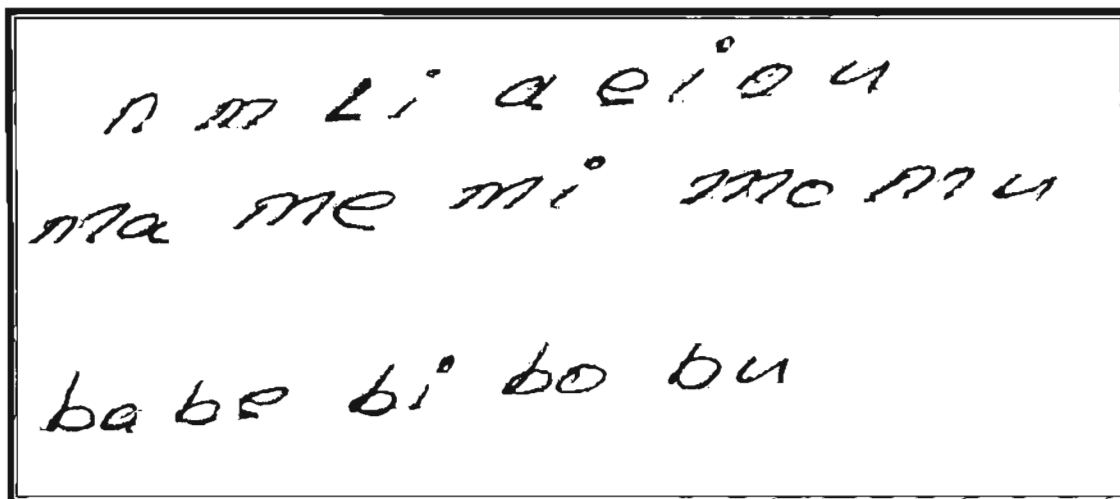 n m L i a e i o u
ma me mi mo mu
ba be bi bo bu